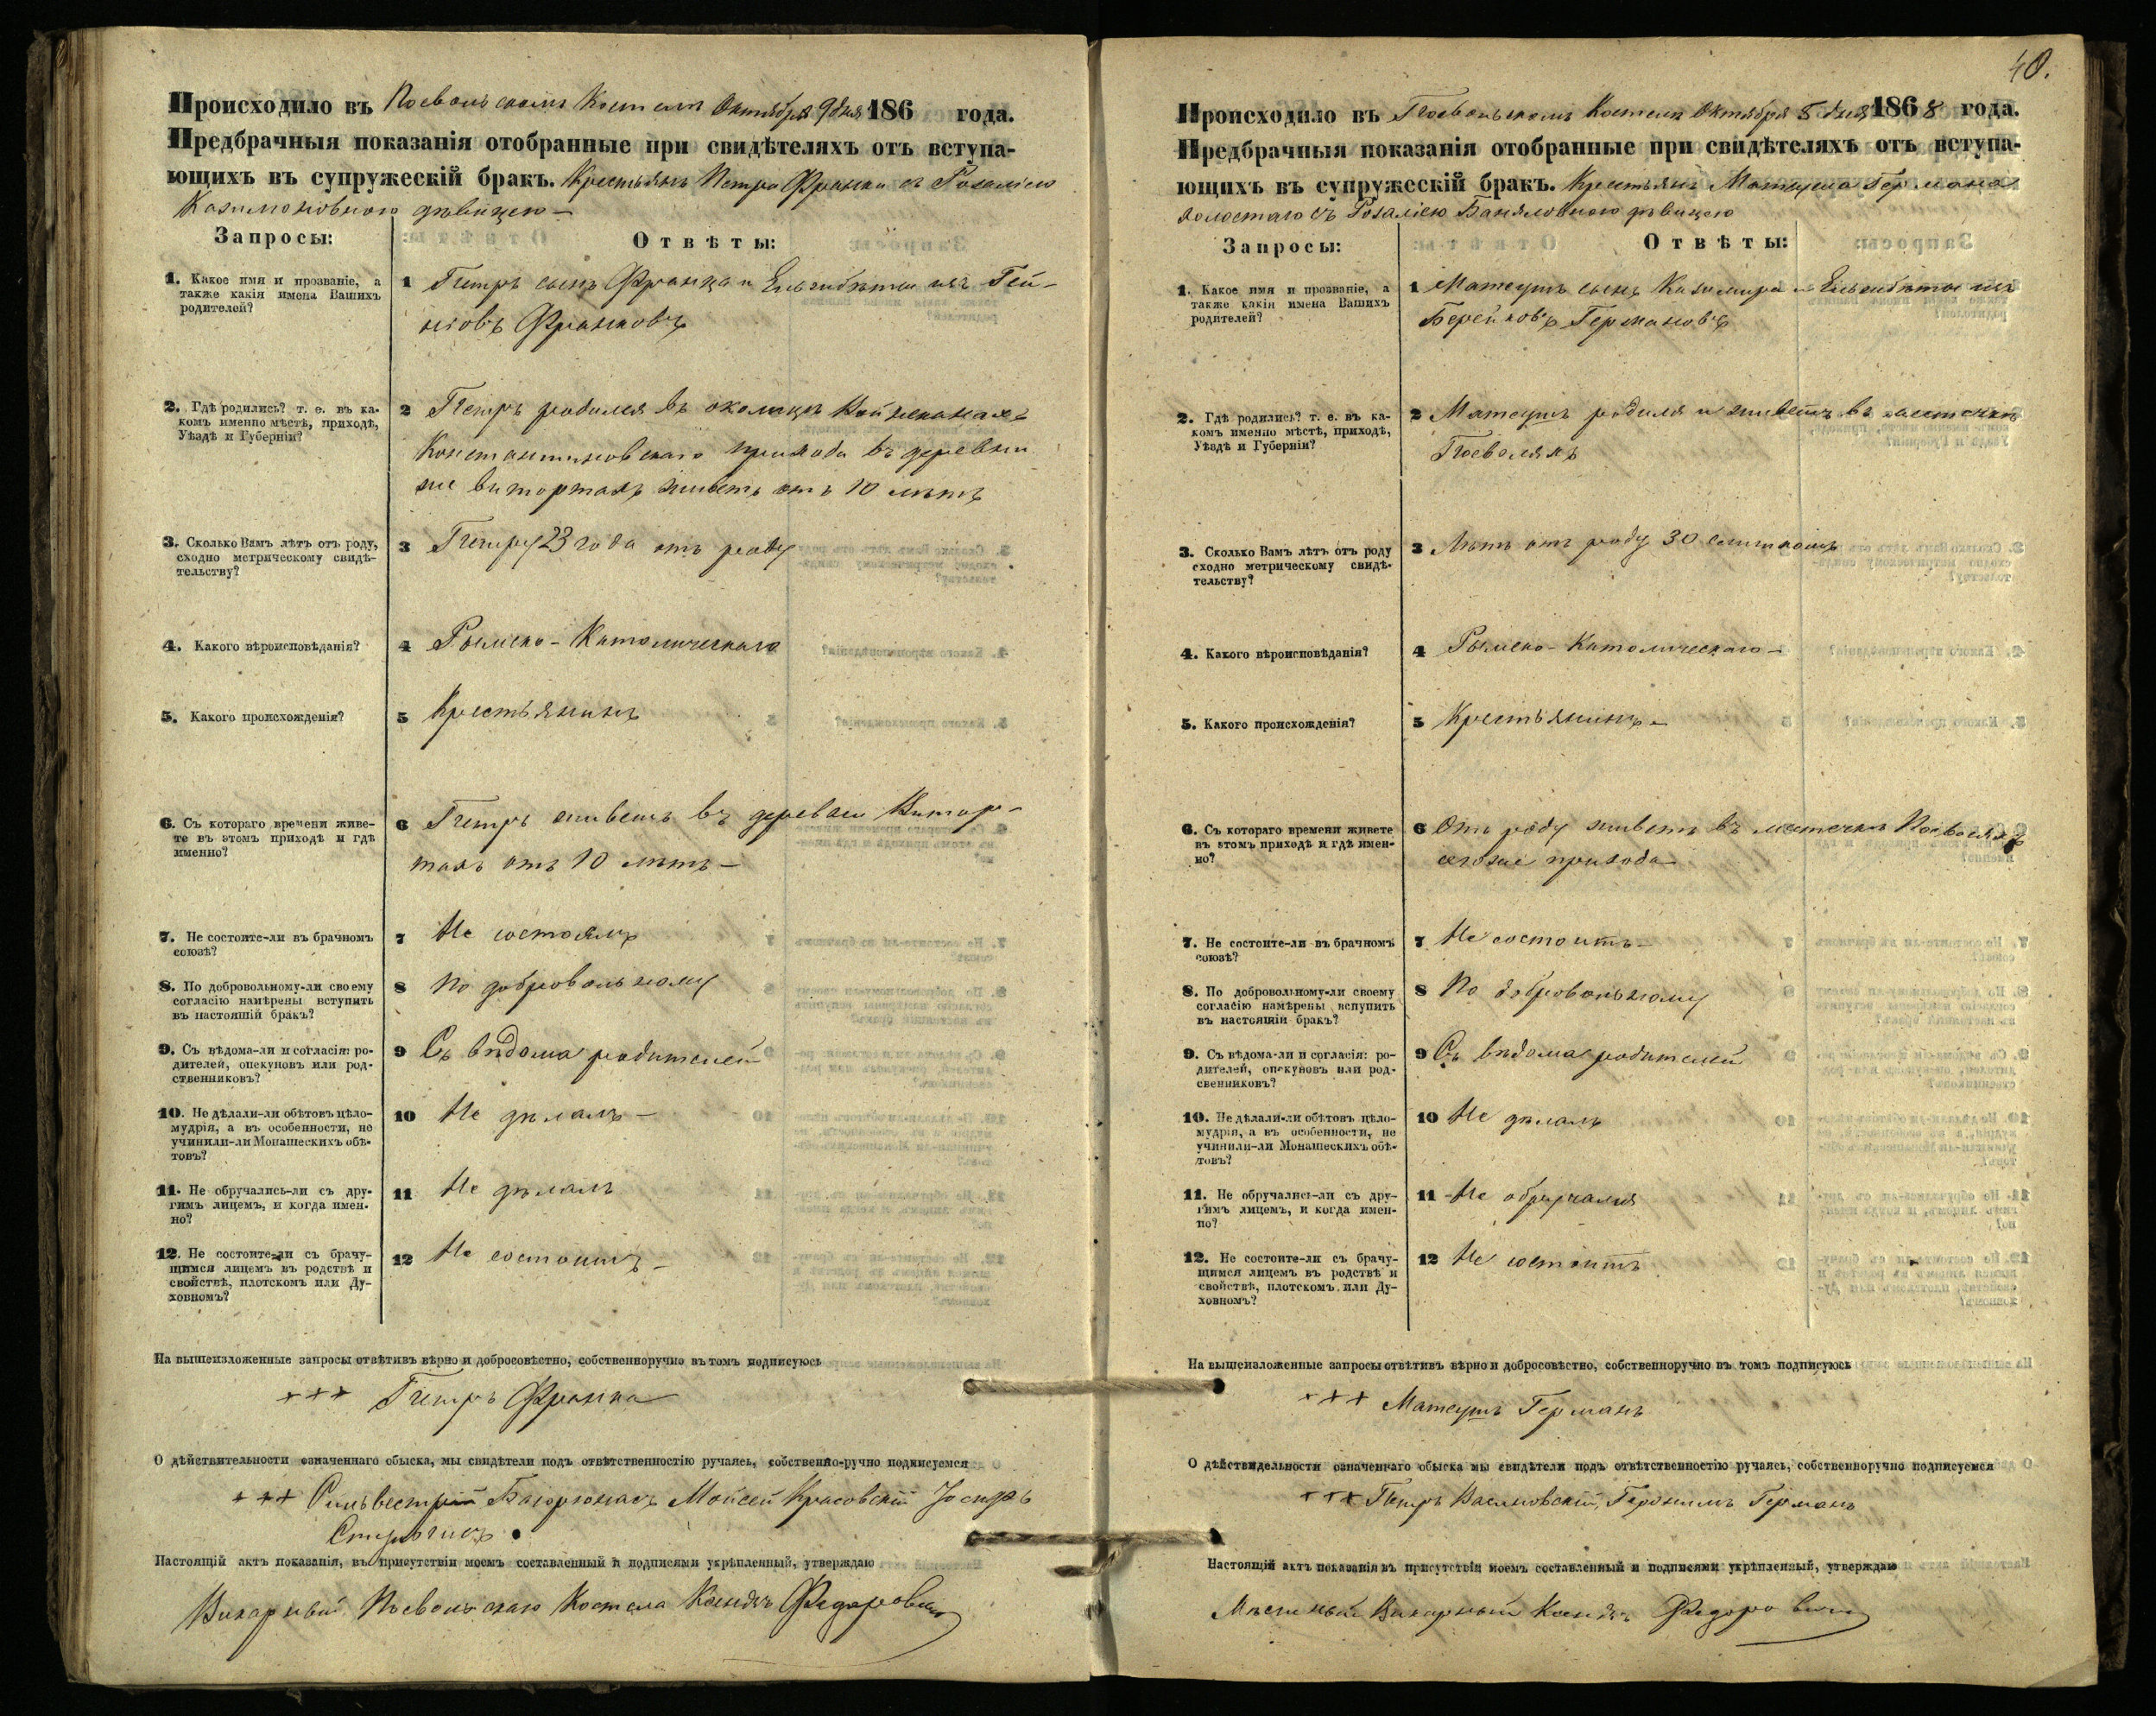 Происходило въ Посвольскомъ Костелѣ Октября 9 дня 186 года.
Предбрачныя показанія отобранные при свидѣтеляхъ отъ вступа-
ющихъ въ супружескій бракъ. Крестьянъ Петра Франка съ Розаліею
дѣвицею —
Запросы: Отвѣты:
1. Какое имя и прозваніе, а
также какія имена Вашихъ
родителей?
1 Петръ сынъ Франца и Ельжбѣты изъ
Франковъ
2. Гдѣ родились? т. е. въ ка-
комъ именно мѣстѣ, приходѣ,
Уѣздѣ и Губерніи?
2 Петръ родился въ околицѣ
Константиновскаго прихода въ деревни
же Витортахъ живетъ отъ 10 лѣтъ
3. Сколько Вамъ лѣтъ отъ роду,
сходно метрическому свидѣ-
тельству?
3 Петру 23 года отъ роду
4. Какого вѣроисповѣданія?
4 Рымско-Католическаго
5. Какого происхожденія?
5 Крестьянинъ
6. Съ котораго времени живе-
те въ этомъ приходѣ и гдѣ
именно?
6 Петръ живетъ въ деревни Витор-
тахъ отъ 10 лѣтъ —
7. Не состоите-ли въ брачномъ
союзѣ?
7 Не состоялъ
8. По добровольному-ли своему
согласію намѣрены вступить
въ настоящій бракъ?
8 По добровольному
9. Съ вѣдома-ли и согласія: ро-
дителей, опекуновъ или род-
ственниковъ?
9 Съ вѣдома родителей
10. Не дѣлали-ли обѣтовъ цѣло-
мудрія, а въ особенности, не
учинили-ли Монашескихъ обѣ-
товъ?
10 Не дѣлалъ —
11. Не обручались-ли съ дру-
гимъ лицемъ, и когда имен-
но?
11 Не дѣлалъ
12. Не состоите-ли съ брачу-
щимся лицемъ въ родствѣ и
свойствѣ, плотскомъ или Ду-
ховномъ?
12 Не состоитъ —
На вышеизложенные запросы отвѣтивъ вѣрно и добросовѣстно, собственноручно въ томъ подписуюсь
+++ Петръ Франка
О дѣйствительности означеннаго обыска, мы свидѣтели подъ отвѣтственностію ручаясь, собственно-ручно подписуемся
+++ Сильвестрій Моисей Красовскій Іосифъ
Настоящій актъ показанія, въ присутствіи моемъ составленный и подписями укрѣпленный, утверждаю
Викарный Посвольскаго Костела Ксендзъ Федоровичъ
40.
Происходило въ Посвольскомъ Костелѣ Октября 8 дня 1868 года.
Предбрачныя показанія отобранные при свидѣтеляхъ отъ вступа-
ющихъ въ супружескій бракъ. Крестьянъ Матеуша Германа
холостаго съ Розаліею дѣвицею
Запросы: Отвѣты:
1. Какое имя и прозваніе, а
также какія имена Вашихъ
родителей?
1 Матеушъ сынъ Казимира и Ельжбѣты изъ
Берейковъ Германовъ
2. Гдѣ родились? т. е. въ ка-
комъ именно мѣстѣ, приходѣ,
Уѣздѣ и Губерніи?
2 Матеушъ родился и живетъ въ мѣстечкѣ
Посволяхъ
3. Сколько Вамъ лѣтъ отъ роду
сходно метрическому свидѣ-
тельству?
3 Лѣтъ отъ роду 30 слишкомъ
4. Какого вѣроисповѣданія?
4 Рымско-Католическаго —
5. Какого происхожденія?
5 Крестьянинъ —
6. Съ котораго времени живете
въ этомъ приходѣ и гдѣ имен-
но?
6 Отъ роду живетъ въ мѣстечкѣ Посволяхъ
сегоже прихода
7. Не состоите-ли въ брачномъ
союзѣ?
7 Не состоитъ —
8. По добровольному-ли своему
согласію намѣрены вступить
въ настоящій бракъ?
8 По добровольному
9. Съ вѣдома-ли и согласія: ро-
дителей, опекуновъ или род-
свенниковъ?
9 Съ вѣдома родителей
10. Не дѣлали-ли обѣтовъ цѣло-
мудрія, а въ особенности, не
учинили-ли Монашескихъ обѣ-
товъ?
10 Не дѣлалъ
11. Не обручались-ли съ дру-
гимъ лицемъ, и когда имен-
но?
11 Не обручался
12. Не состоите-ли съ брачу-
щимся лицемъ въ родствѣ и
свойствѣ, плотскомъ или Ду-
ховномъ?
12 Не состоитъ
На вышеизложенные запросы отвѣтивъ вѣрно и добросовѣстно, собственноручно въ томъ подписуюсь
+++ Матеушъ Германъ
О дѣйствидельности означеннаго обыска мы свидѣтели подъ отвѣтственностію ручаясь, собственноручно подписуемся
+++ Петръ Василовскій, Геронимъ Германъ
Настоящій актъ показанія въ присутствіи моемъ составленный и подписями укрѣпленный, утверждаю
Мѣстный Викарный Ксендзъ Федоровичъ